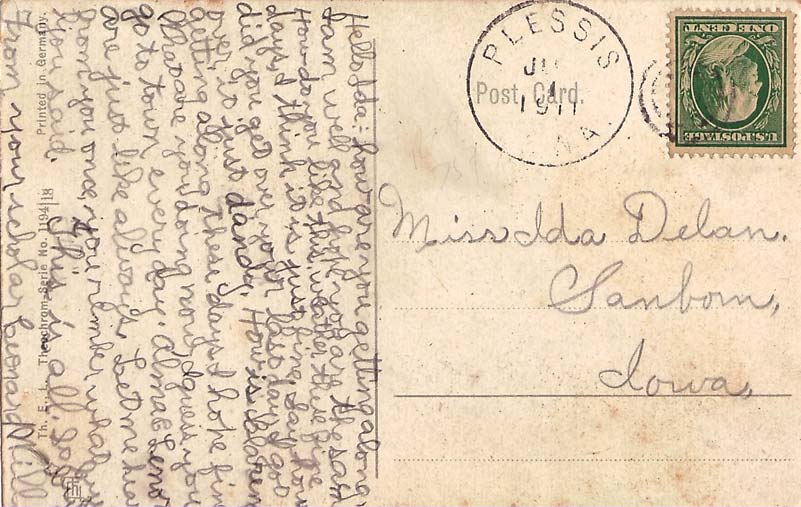 Hello Ida:- how are you getting along,
I am well and hope you are the same
How do you like this wheather these fine
days, I think it is just fine. Say how
did you get over your last days I got
over it just dandy. How is Claren
getting along these days I hope fine
What are you doing now, I guess you
go to town every day. Alma & Leno
are just like allways. Let me hea
from you once, if you rember what
you said. This is all. 
From your scholar Leonard Mill
Th. E. L. Theochrom-Serie No. 1194|18 Printed in Germany.
PLESSIS
JU
1
1911
Post Card.
U.S. POSTAGE
ONE CENT
Miss Ida Delan.
Sanborn,
Iowa,